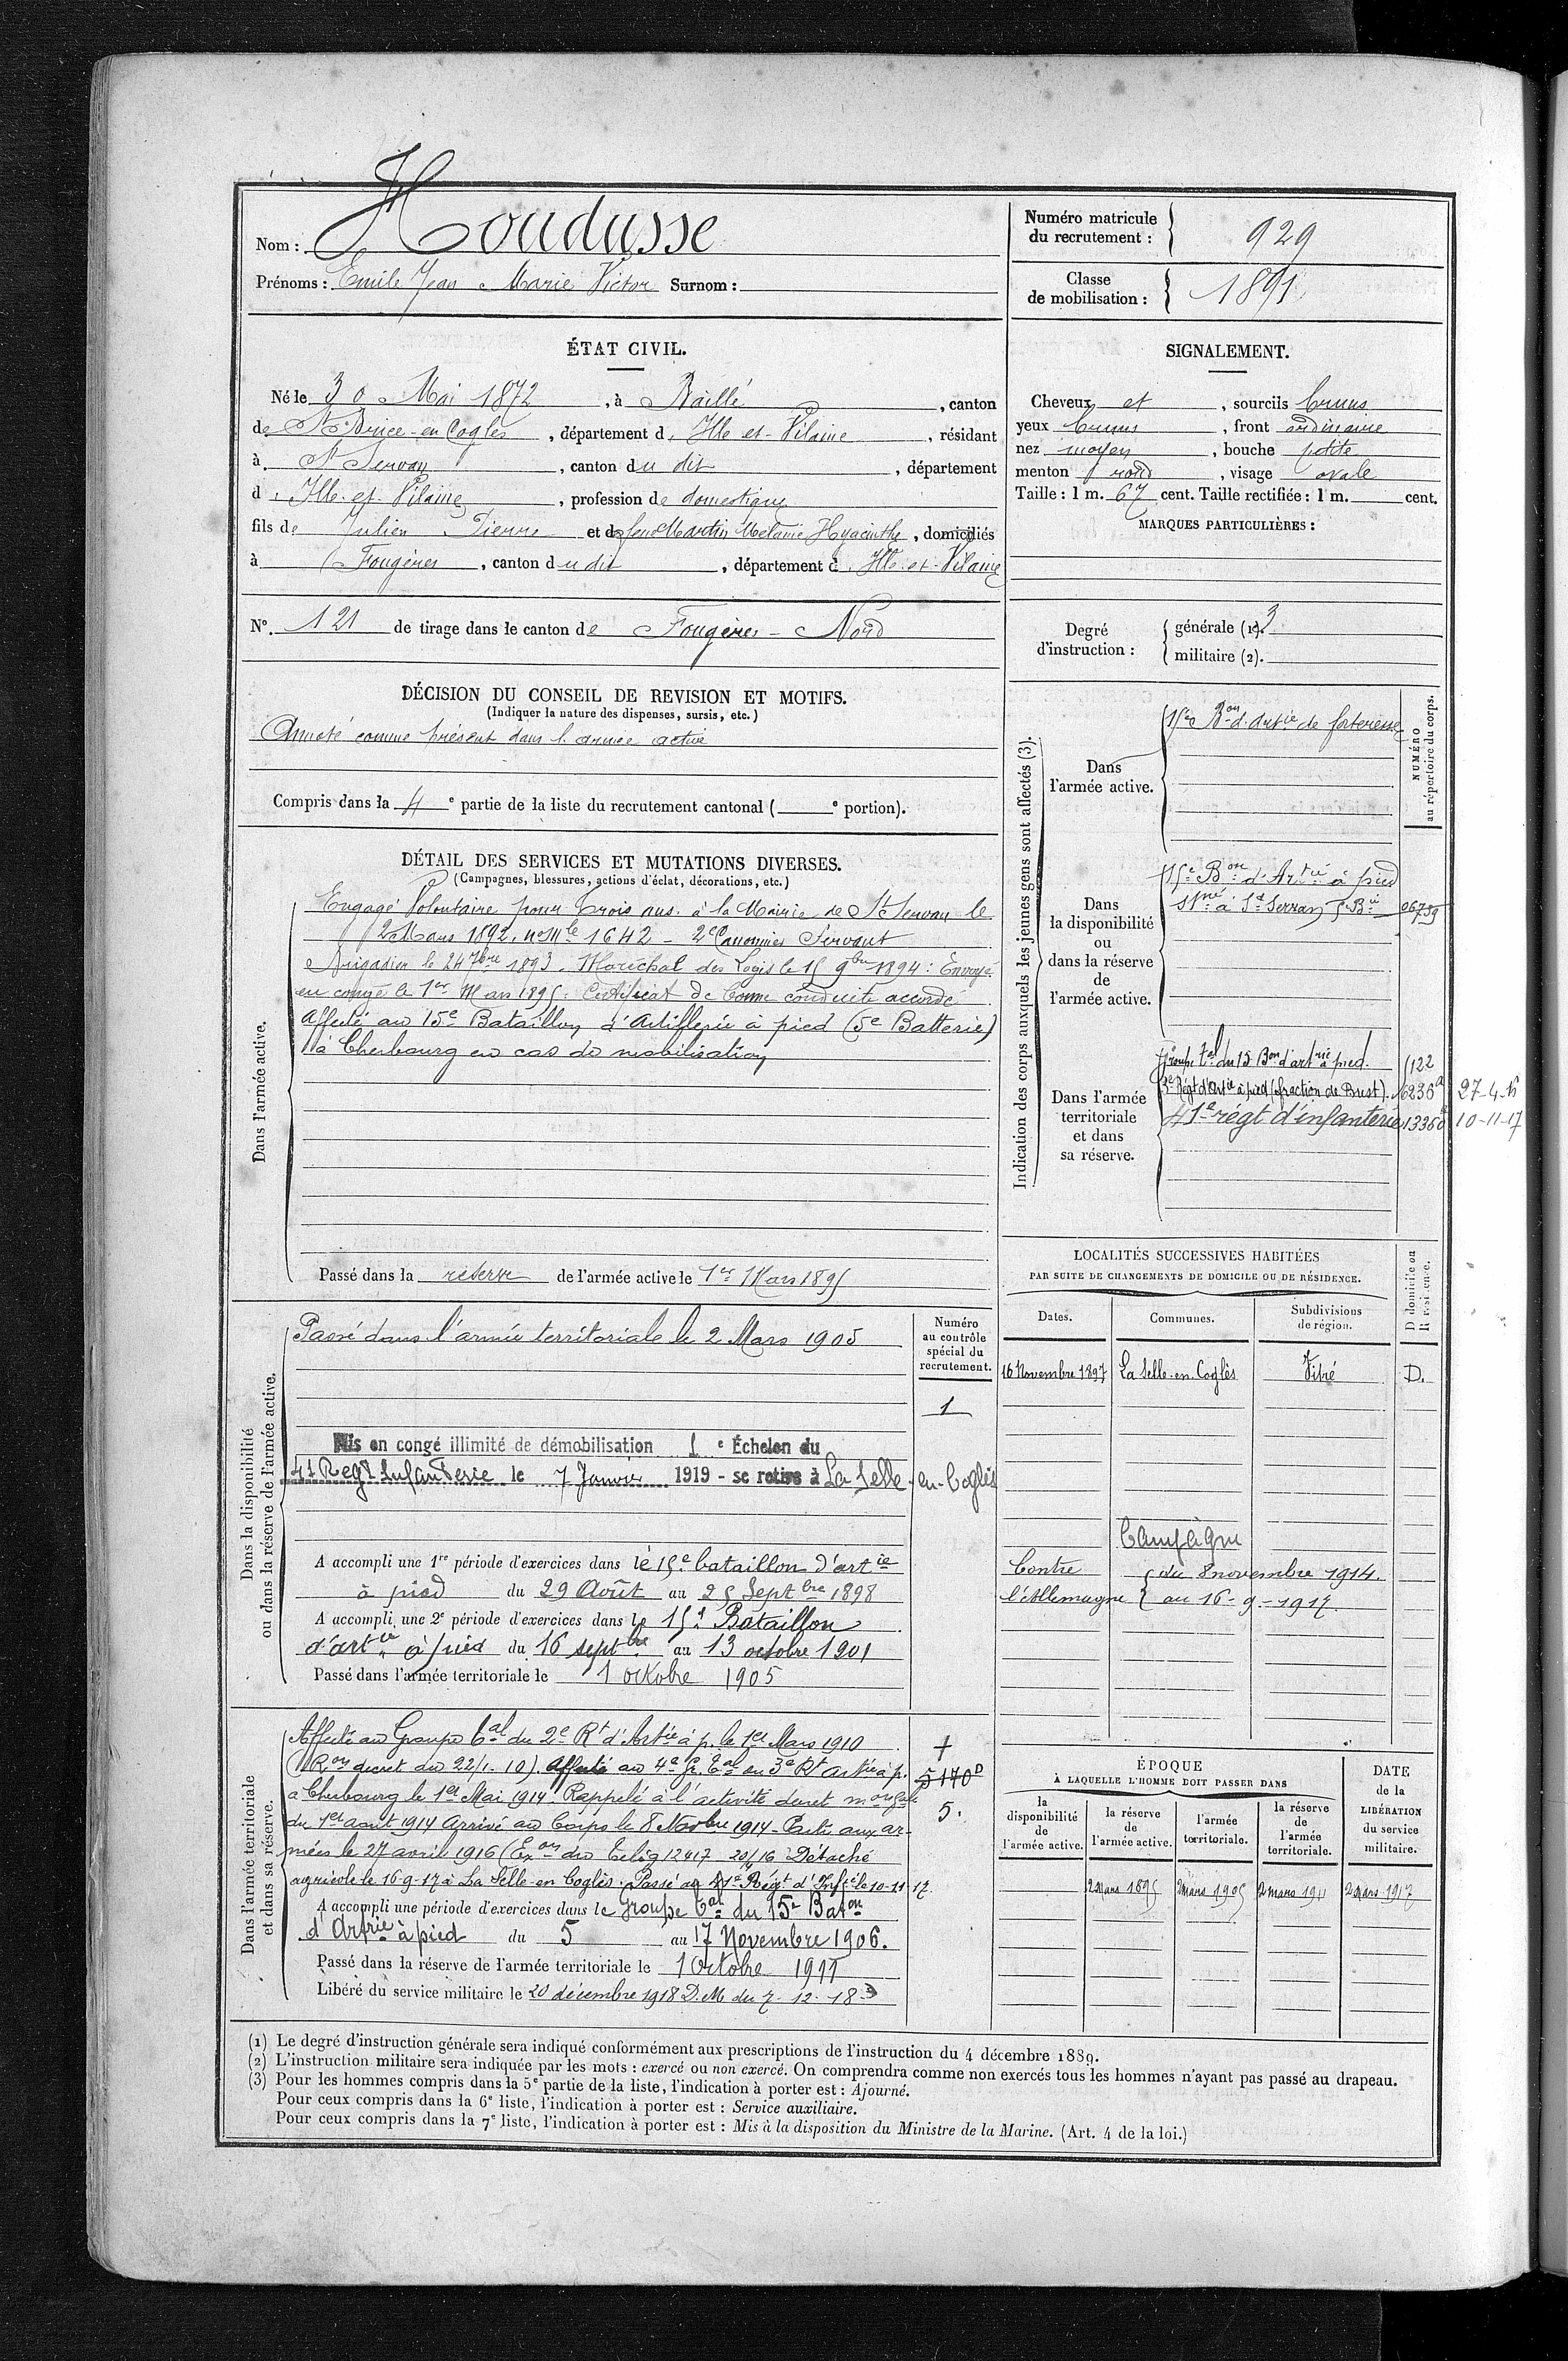 Nom : Houdusse
Prénoms : Emile Jean Marie Victor Surnom :
Numéro matricule du recrutement : 929
Classe de mobilisation : 1891
ÉTAT CIVIL.
Né le 30 Mai 1872, à Baillé, canton
de St Brice-en-Cogles, département d'Ille et-Vilaine, résidant
à St Servan, canton du dit, département
d'Ille-et-Vilaine, profession de domestique
fils de Julien Pierre et de feue Martin Mélanie Hyacinthe, domiciliés
à Fougères, canton du dit, département d'Ille-et-Vilaine
N°. 121 de tirage dans le canton de Fougères-Nord
SIGNALEMENT.
Cheveux et, sourcils bruns
yeux bruns, front ordinaire
nez moyen, bouche petite
menton rond, visage ovale
Taille : 1 m. 67 cent. Taille rectifiée : 1 m. cent.
MARQUES PARTICULIÈRES :
Degré d'instruction :
générale (1). 3
militaire (2).
DÉCISION DU CONSEIL DE REVISION ET MOTIFS.
(Indiquer la nature des dispenses, sursis, etc.)
Annoté comme présent dans l'armée active
Compris dans la 4e partie de la liste du recrutement cantonal ( e portion).
DÉTAIL DES SERVICES ET MUTATIONS DIVERSES.
(Campagnes, blessures, actions d'éclat, décorations, etc.)
Dans l'armée active.
Engagé Volontaire pour trois ans à la Mairie de St Servan le
2 Mars 1892. no Mle 1642 - 2e Canonnier Servant
Brigadier le 24 7bre 1893. Maréchal des Logis le 15 9bre 1894 : Envoyé
en congé le 1er Mars 1895. Certificat de bonne conduite accordé
Affecté au 15e Bataillon d'Artillerie à pied (5e Batterie)
à Cherbourg en cas de mobilisation
Passé dans la réserve de l'armée active le 1er Mars 1895
Indication des corps auxquels les jeunes gens sont affectés (3).
NUMÉRO au répertoire du corps.
Dans l'armée active.
15e Bon d'artie de forteresse
Dans la disponibilité ou dans la réserve de l'armée active.
15e Bon d'Artie à pied
à St Servan 5e Bie 06759
Dans l'armée territoriale et dans sa réserve.
Groupe tal du 15 Bon d'artrie à pied. 1122
3e Régt d'artie à pied (fraction de Brest). 6236 27-4-16
41e régt d'infanterie 13360 10-11-17
Dans la disponibilité ou dans la réserve de l'armée active.
Numéro au contrôle spécial du recrutement.
Passé dans l'armée territoriale le 2 Mars 1905
1
Mis en congé illimité de démobilisation 1e Échelon du
41 Regt Infanterie le 7 Janvier 1919 - se retire à La Selle-en-Coglès
A accompli une 1re période d'exercices dans le 15e bataillon d'artie
à pied du 29 Août au 25 Septbre 1898
A accompli une 2e période d'exercices dans le 15e Bataillon
d'artie à pied du 16 septbre au 13 octobre 1901
Passé dans l'armée territoriale le 1 octobre 1905
LOCALITÉS SUCCESSIVES HABITÉES
PAR SUITE DE CHANGEMENTS DE DOMICILE OU DE RÉSIDENCE.
Dates. Communes. Subdivisions de région. D domicile ou R résidence.
16 Novembre 1897 La Selle-en-Coglès Vitré D.
Campagne
Contre l'Allemagne
du 8 novembre 1914.
au 16-9-1917.
Dans l'armée territoriale et dans sa réserve.
Affecté au Groupe tal du 2e Rt d'Artie à p. le 1er Mars 1910
(Ron decret du 22/1-10). Affecté au 4e Gr. tal du 3e Rt artie à p.
5140D
à Cherbourg le 1er Mai 1914. Rappelé à l'activité decret
5.
du 1er août 1914 Arrivé au Corps le 8 Novbre 1914 - Parti aux ar-
mées le 27 avril 1916 (Exon du Télég 12417 20/16 Détaché
agricole le 16-9-17 à La Selle-en-Coglès. Passé au 41e Régt d'Infie le 10-11-17.
A accompli une période d'exercices dans le Groupe tal du 15e Baton
d'Artrie à pied du 5 au 17 Novembre 1906.
Passé dans la réserve de l'armée territoriale le 1 Octobre 1911
Libéré du service militaire le 20 décembre 1918 D.M du 7-12-18
ÉPOQUE À LAQUELLE L'HOMME DOIT PASSER DANS
la disponibilité de l'armée active.
la réserve de l'armée active.
l'armée territoriale.
la réserve de l'armée territoriale.
DATE de la LIBÉRATION du service militaire.
2 Mars 1895 2 mars 1905 2 mars 1911 2 Mars 1917
(1) Le degré d'instruction générale sera indiqué conformément aux prescriptions de l'instruction du 4 décembre 1889.
(2) L'instruction militaire sera indiquée par les mots : exercé ou non exercé. On comprendra comme non exercés tous les hommes n'ayant pas passé au drapeau.
(3) Pour les hommes compris dans la 5e partie de la liste, l'indication à porter est : Ajourné.
Pour ceux compris dans la 6e liste, l'indication à porter est : Service auxiliaire.
Pour ceux compris dans la 7e liste, l'indication à porter est : Mis à la disposition du Ministre de la Marine. (Art. 4 de la loi.)